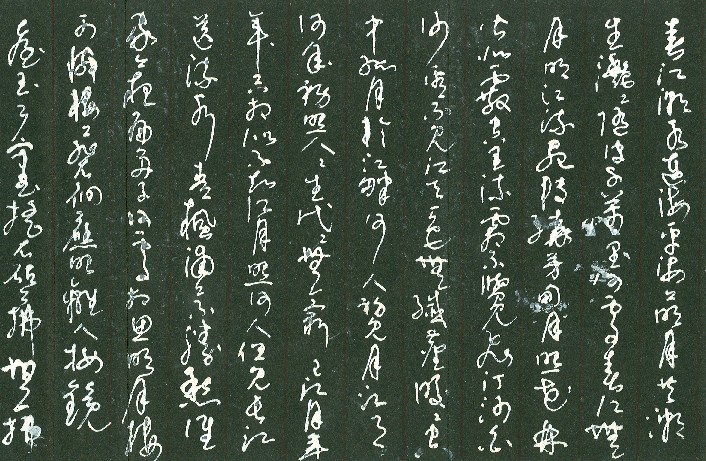 春江潮水連海平海上明月共潮
生灩灩隨波千萬里何處春江無
月明江流宛轉繞芳甸月照花林
皆似霰空里流霜不覺飛汀上白
沙看不見江天一色無纖塵皎皎空
中孤月輪江畔何人初見月江月
何年初照人人生代代無窮已江月年
年只相似不知江月照何人但見長江
送流水青楓浦上不勝愁誰
家今夜扁舟子何處相思明月樓
可憐樓上月徘徊應照離人妝鏡
臺玉戶砧上拂